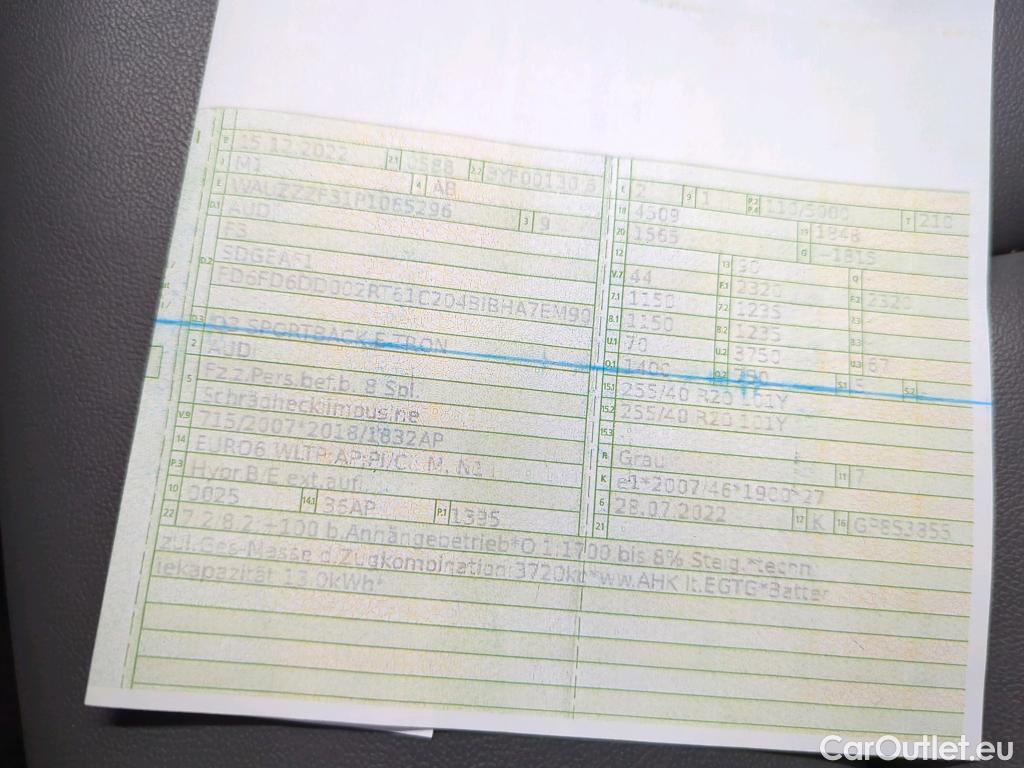 B 15.12.2022 2.1 0588 2.2 BYF00130 6
J M1 4 AB
E WAUZZZF31P1065296 3 9
D.1 AUDI
F3
D.2 SDGEAF1
FD6FD6DD002RT61C204BIBHA7EM99
D.3 Q3 SPORTBACK E-TRON
2 AUDI
5 Fz.z.Pers.bef.b. 8 Spl.
Schräghecklimousine
V.9 715/2007*2018/1832AP
14 EURO6 WLTP AP;PI/CI M, N1 I
P.3 Hybr.B/E ext.aufl.
10 0025 14.1 36AP P.1 1395
L 2 9 1 P.2 P.4 110/5000 T 210
18 4509 19 1848
20 1565 G -1815
12 - 13 90 Q -
V.7 44 F.1 2320 F.2 2320
7.1 1150 7.2 1235 7.3 -
8.1 1150 8.2 1235 8.3 -
U.1 70 U.2 3750 U.3 67
O.1 1400 O.2 750 S.1 5 S.2 -
15.1 255/40 R20 101Y
15.2 255/40 R20 101Y
15.3 -
R Grau 11 7
K e1*2007/46*1900*27
6 28.07.2022 17 K 16 GP853355
21
22 7.2,8.2:+100 b.Anhängebetrieb*O.1:1700 bis 8% Steig.*techn
zul.Ges-Masse d.Zugkombination:3720kg*ww.AHK lt.EGTG*Batter
iekapazität 13,0kWh*
CarOutlet.eu